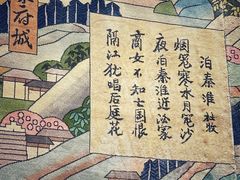 泊秦淮 杜牧
烟笼寒水月笼沙
夜泊秦淮近酒家
商女不知亡国恨
隔江犹唱后庭花
府城